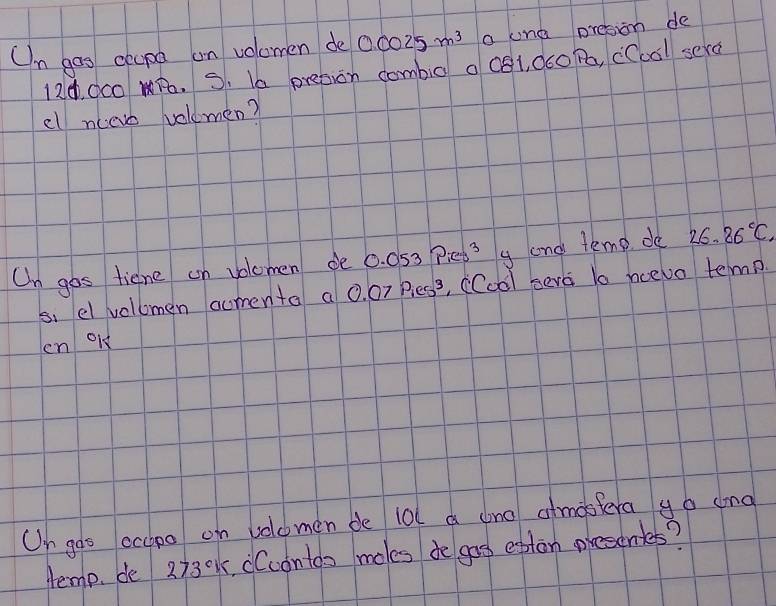 Un gas ocupa un volumen de 0.0025 m³ a una presión de
121.000 Pa. Si la presión cambia a 081,060 Pa, ¿Cual sera
el nuevo volumen?
Un gas tiene un volumen de 0.053 Pies³ y una temp. de 26.86°C.
si el volumen aumenta a 0.07 Pies³, ¿Cual será la nueva temp.
en °K
Un gas ocupa un volumen de 10L a una atmósfera y a una
temp. de 273°K. ¿Cuántos moles de gas están presentes?